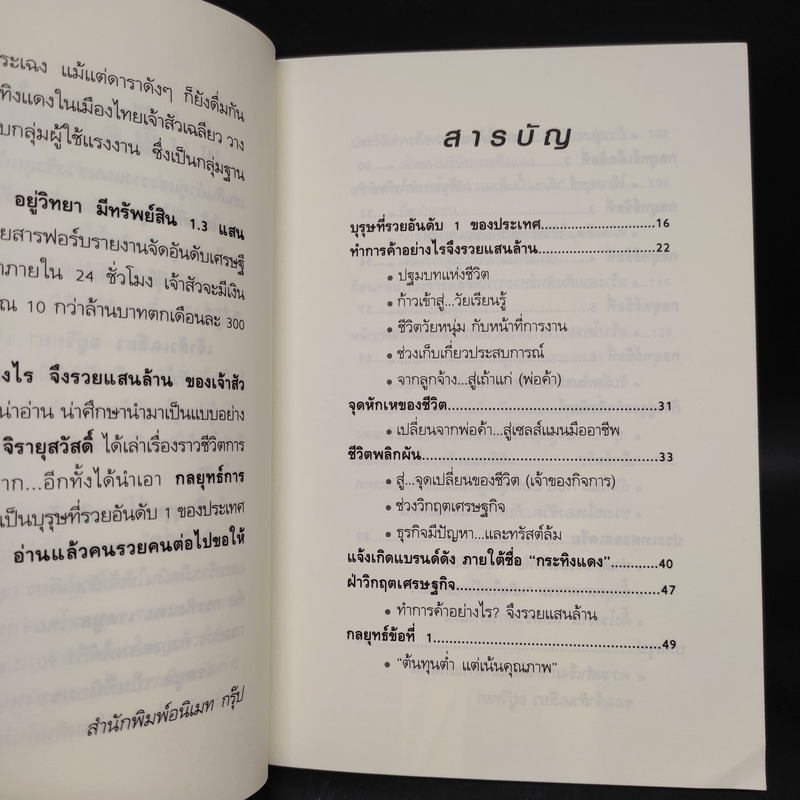 ระเฉง แม้แต่ดาราดังๆ ก็ยังดื่มกัน
ทิงแดงในเมืองไทยเจ้าสัวเฉลียว วาง
บกลุ่มผู้ใช้แรงงาน ซึ่งเป็นกลุ่มฐาน
อยู่วิทยา มีทรัพย์สิน 1.3 แสน
ยสารฟอร์บรายงานจัดอันดับเศรษฐี
าภายใน 24 ชั่วโมง เจ้าสัวจะมีเงิน
ณ 10 กว่าล้านบาทตกเดือนละ 300
งไร จึงรวยแสนล้าน ของเจ้าสัว
น่าอ่าน น่าศึกษานำมาเป็นแบบอย่าง
จิรายุสวัสดิ์ ได้เล่าเรื่องราวชีวิตการ
าก...อีกทั้งได้นำเอา กลยุทธ์การ
เป็นบุรุษที่รวยอันดับ 1 ของประเทศ
อ่านแล้วคนรวยคนต่อไปขอให้
สำนักพิมพ์อนิเมท กรุ๊ป
สารบัญ
บุรุษที่รวยอันดับ 1 ของประเทศ.........................16
ทำการค้าอย่างไรจึงรวยแสนล้าน.........................22
• ปฐมบทแห่งชีวิต
• ก้าวเข้าสู่...วัยเรียนรู้
• ชีวิตวัยหนุ่ม กับหน้าที่การงาน
• ช่วงเก็บเกี่ยวประสบการณ์
• จากลูกจ้าง...สู่เถ้าแก่ (พ่อค้า)
จุดหักเหของชีวิต.............................................31
• เปลี่ยนจากพ่อค้า...สู่เซลส์แมนมืออาชีพ
ชีวิตพลิกผัน...................................................33
• สู่...จุดเปลี่ยนของชีวิต (เจ้าของกิจการ)
• ช่วงวิกฤตเศรษฐกิจ
• ธุรกิจมีปัญหา...และทรัสต์ล้ม
แจ้งเกิดแบรนด์ดัง ภายใต้ชื่อ “กระทิงแดง”..........40
ฝ่าวิกฤตเศรษฐกิจ............................................47
• ทำการค้าอย่างไร? จึงรวยแสนล้าน
กลยุทธ์ข้อที่ 1.................................................49
• “ต้นทุนต่ำ แต่เน้นคุณภาพ”